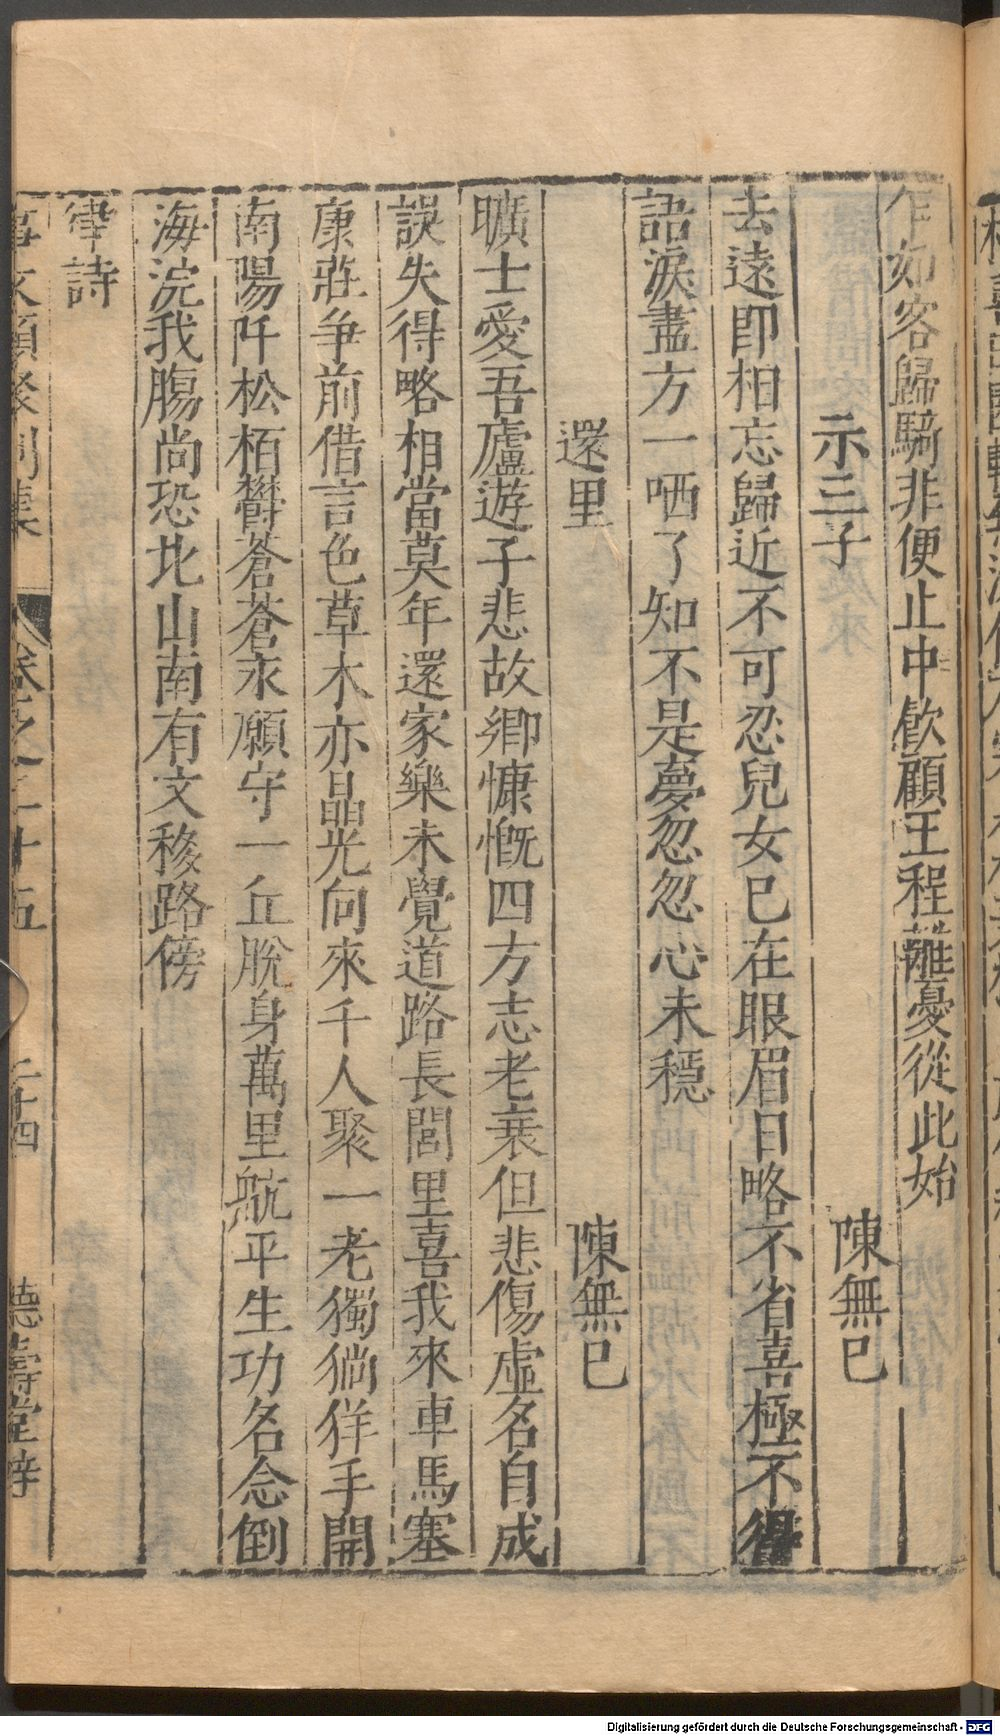 乍如客歸騎非便止中飲顧王程離憂從此始
示三子　陳無已
去遠即相忘歸近不可忍兒女已在眼眉目略不省喜極不得
語淚盡方一哂了知不是夢忽忽心未穩
還里　陳無已
曠士愛吾廬遊子悲故鄉慷慨四方志老衰但悲傷虛名自成
誤失得略相當莫年還家樂未覺道路長閭里喜我來車馬塞
康莊爭前借言色草木亦晶光向來千人聚一老獨徜徉手開
南陽阡松栢欝蒼蒼永願守一丘脫身萬里航平生功名念倒
海浣我腸尚恐北山南有文移路傍
律詩
事文類聚別集　卷之二十五　二十四　德壽堂梓
Digitalisierung gefördert durch die Deutsche Forschungsgemeinschaft - DFG